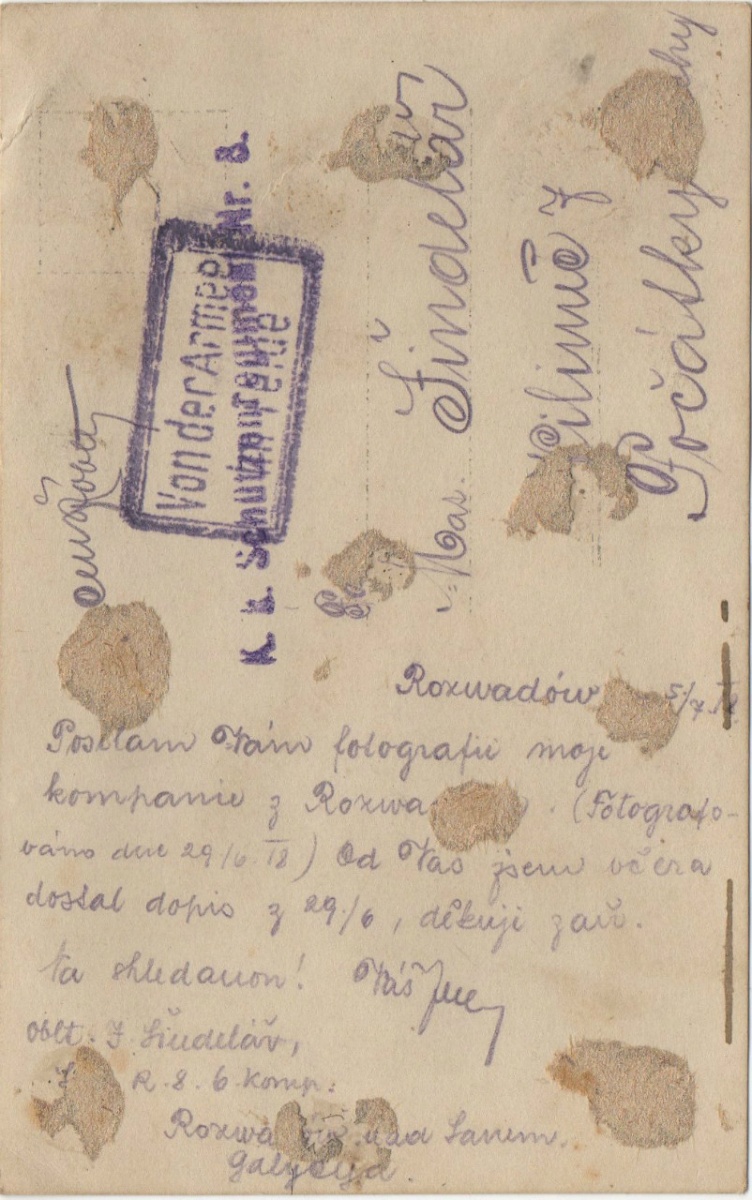 Von der Armee
im Felde
K. k. Schützenregiment Nr. 8.
Šindelář
Počátky
Rozwadów 5/7 18
Posílám Vám fotografii moje
kompanie z Rozwa . (Fotografo-
váno dne 29/6. 18) Od Vás jsem včera
dostal dopis z 29./6, děkuji zaň.
Na shledanou! Váš
Oblt. J. Šindelář,
R. 8. 6 komp.
Rozwa nad Sanem.
Galycya.